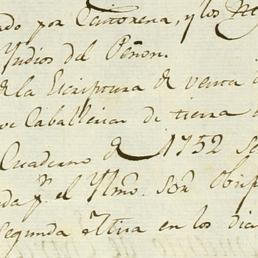 ado por Tentorena, y los
Yndios del Peñon.
de la Escriptura de venta
Caballerias de tierra
Cuaderno de 1752
el Ylmo. Sor. Obisp
segunda en los dia